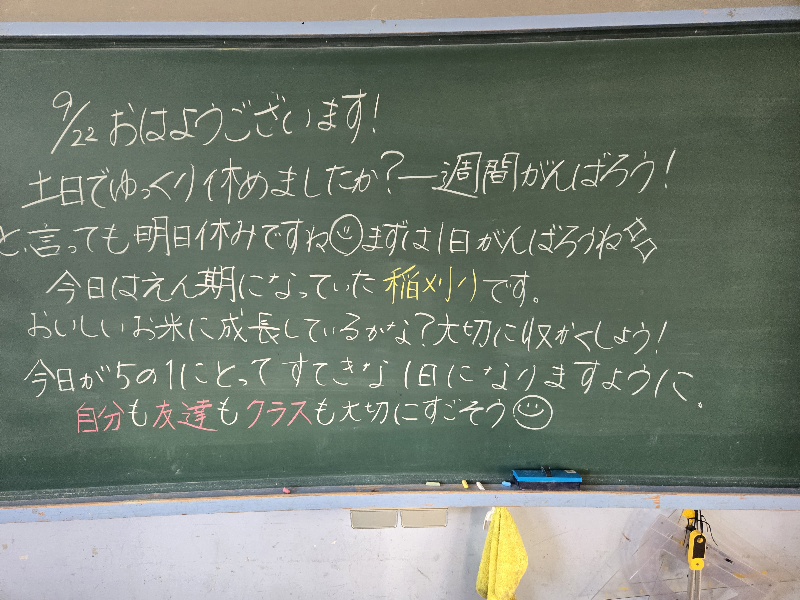 9/22 おはようございます!
土日でゆっくり休めましたか?一週間がんばろう!
と、言っても明日休みですね☺まずは1日がんばろうね✨
今日はえん期になっていた稲刈りです。
おいしいお米に成長しているかな?大切に収かくしよう!
今日が5の1にとってすてきな1日になりますように。
自分も友達もクラスも大切にすごそう☺